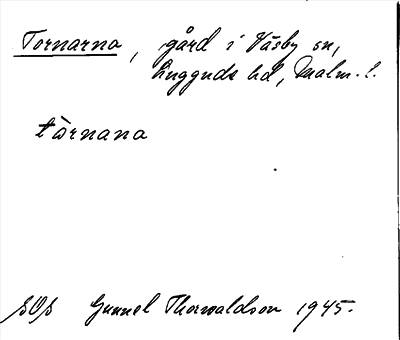 Tornarna, gård i Väsby sn,
Luggude hd, Malm. l.
tòrnana
SOS Gunnel Thorvaldson 1945.